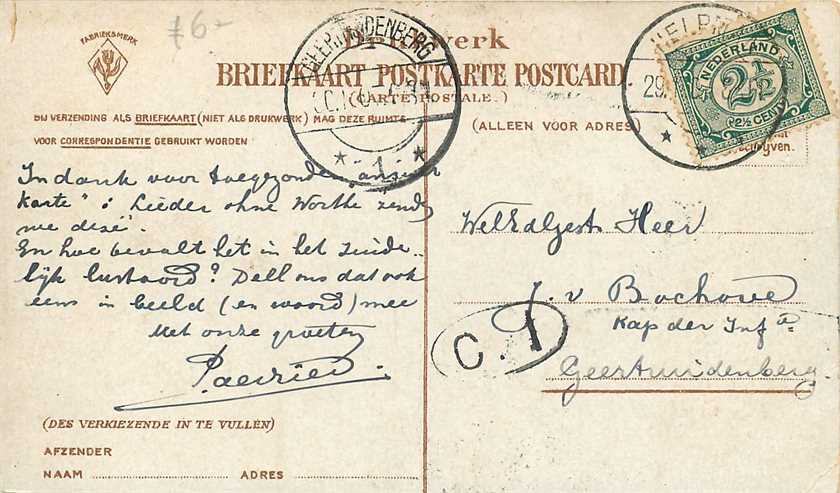 £6-
FABRIEKSMERK
GEERTRUIDENBERG
1
BRIEFKAART POSTKARTE POSTCARD
(CARTE POSTALE.)
BIJ VERZENDING ALS BRIEFKAART (NIET ALS DRUKWERK) MAG DEZE RUIMTE
VOOR CORRESPONDENTIE GEBRUIKT WORDEN
(ALLEEN VOOR ADRES)
NEDERLAND
2½
2½ CENT
29
In dank voor toegezonden "ansicht
karte": Lieder ohne Worte zenden
we deze.
En hoe bevalt het in het zuide-
lijk lustoord? Deel ons dat ook
eens in beeld (en woord) mee
Met onze groeten
WelEdlgestr Heer
J. v Bochove
Kap der Infie
Geertruidenberg
C. 1
(DES VERKIEZENDE IN TE VULLEN)
AFZENDER
NAAM ADRES